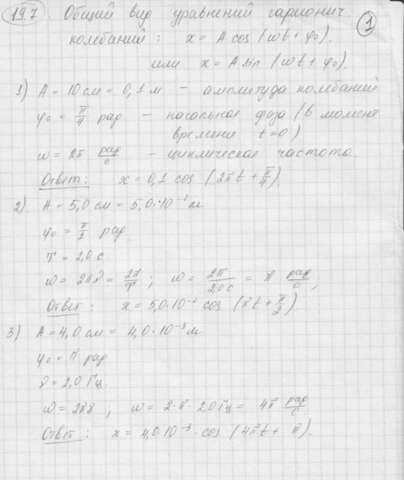 19.7 Общий вид уравнений гармонич. 1
колебаний: x = A cos (ωt + φ₀).
или x = A sin (ωt + φ₀)
1) A = 10 см = 0,1 м – амплитуда колебаний
φ₀ = π/4 рад – начальная фаза (в момент
времени t = 0)
ω = 2π рад/с – циклическая частота.
Ответ: x = 0,1 cos (2πt + π/4).
2) A = 5,0 см = 5,0·10⁻² м
φ₀ = π/2 рад.
T = 2,0 с
ω = 2πν = 2π/T; ω = 2π/2,0 с = π рад/с,
Ответ: x = 5,0·10⁻² cos (πt + π/2)
3) A = 4,0 см = 4,0·10⁻² м
φ₀ = π рад
ν = 2,0 Гц.
ω = 2πν, ω = 2·π·2,0 Гц = 4π рад/с
Ответ: x = 4,0·10⁻² · cos (4πt + π).